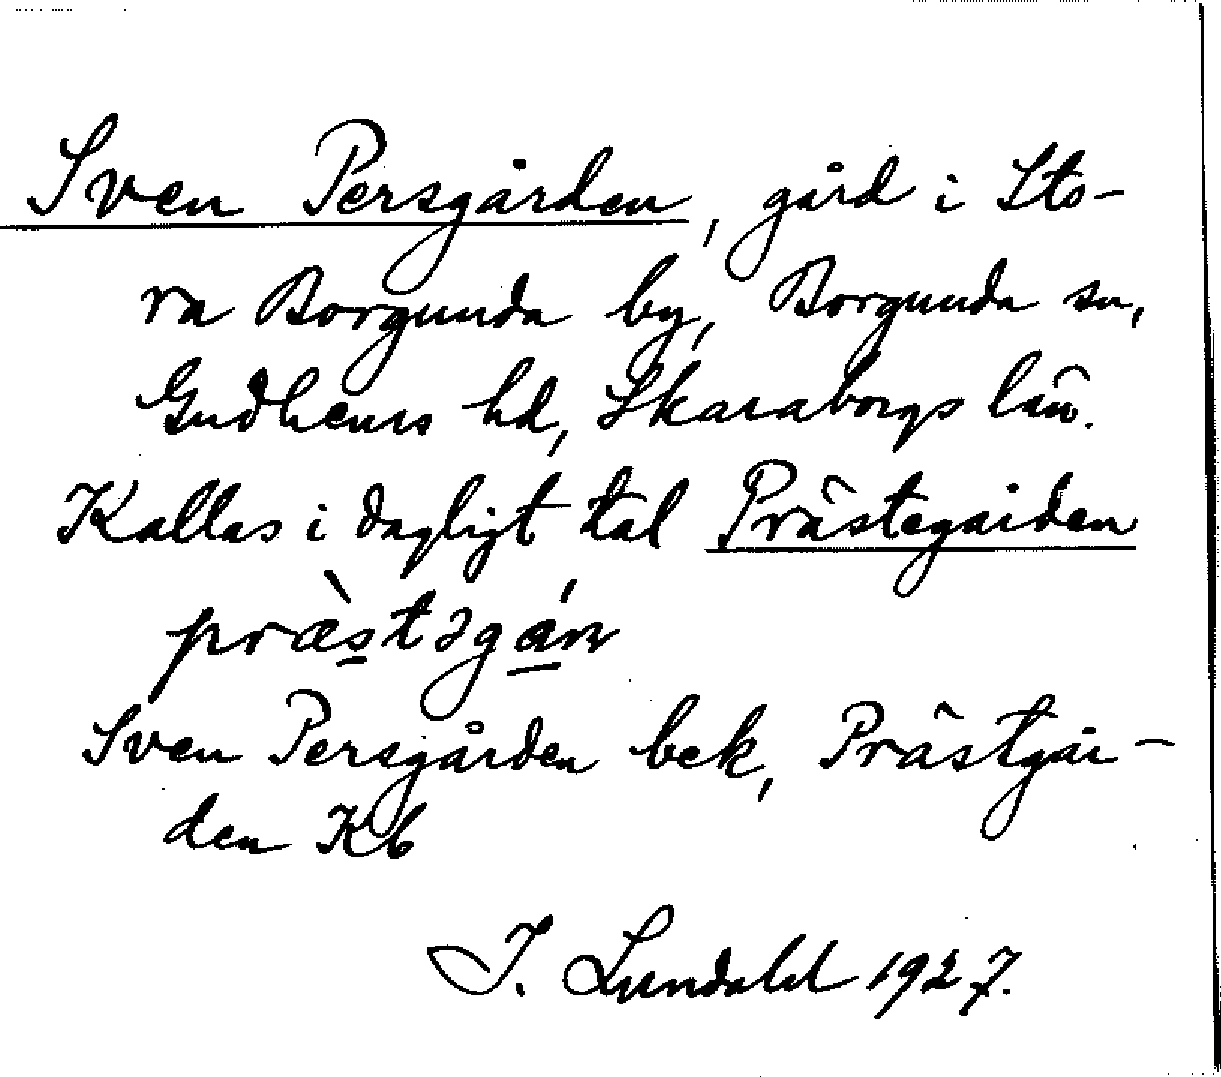 Sven Persgården, gård i Sto-
ra Borgunda by, Borgunda sn,
Gudhems hd, Skaraborgs län.
Kallas i dagligt tal Prästegården
præ̀stəgán
Sven Persgården bek, Prästgår-
den Kb
I. Lundahl 1927.